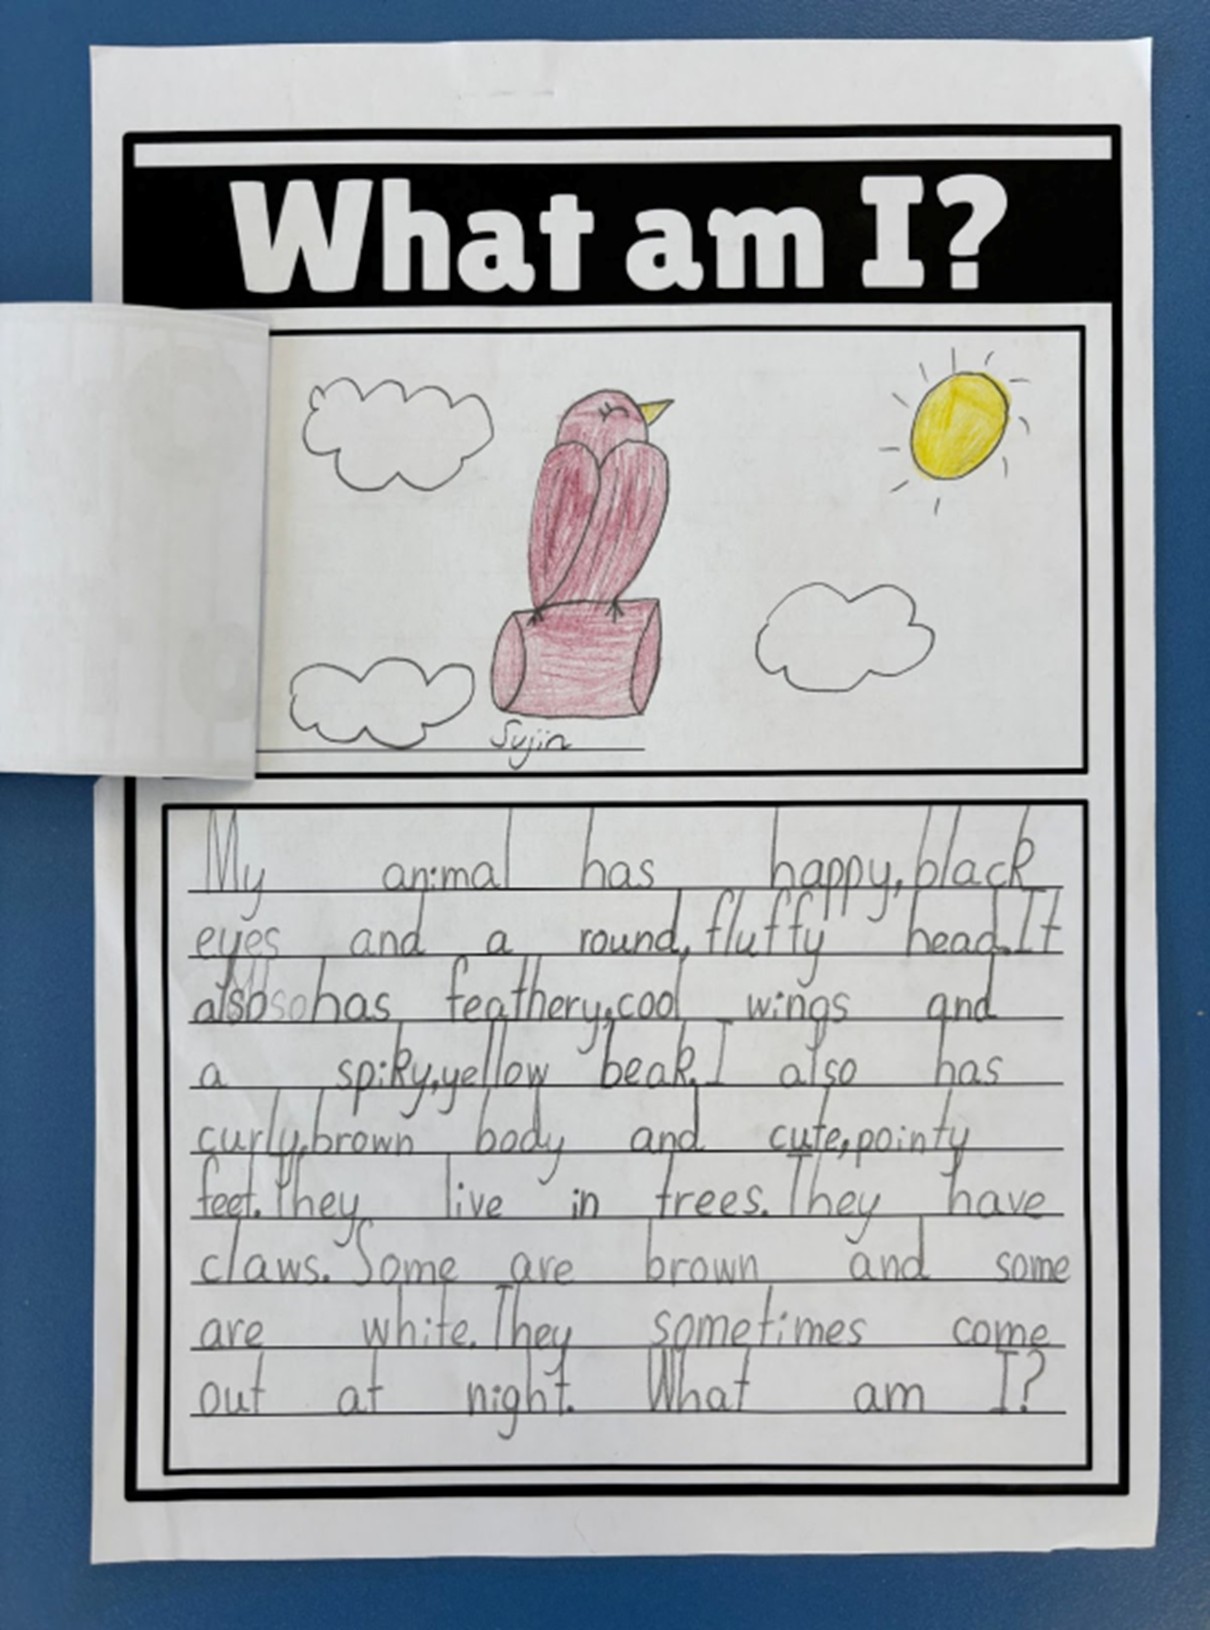 What am I?
Sujin
My animal has happy, black
eyes and a round, fluffy head. It
also has feathery, cool wings and
a spiky, yellow beak. I also has
curly, brown body and cute, pointy
feet. They live in trees. They have
claws. Some are brown and some
are white. They sometimes come
out at night. What am I?